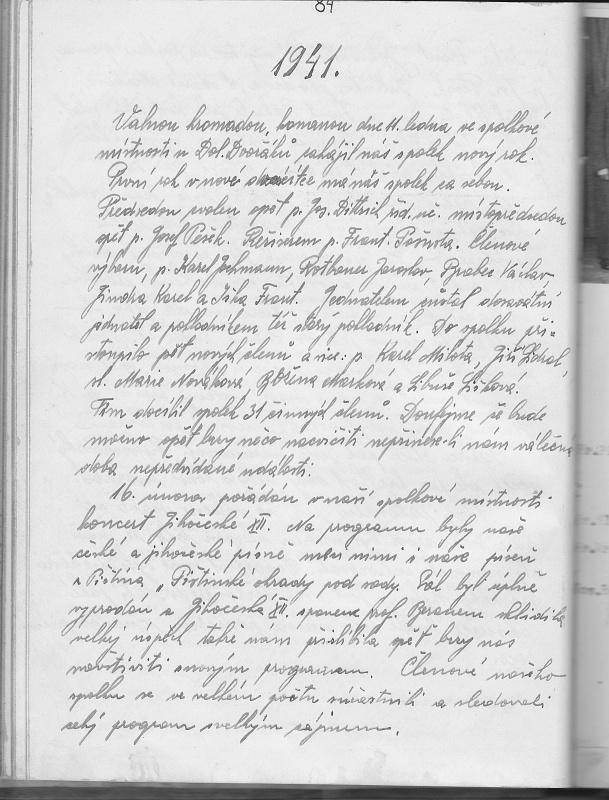 84
1941.
Valnou hromadou, konanou dne 11. ledna, ve spolkové
místnosti u Dol. Dvořáků zahájil náš spolek nový rok.
První rok v nové desítce má náš spolek za sebou.
Předsedou zvolen opět p. Jos. Dittrich říd. uč. místopředsedou
opět p. Josef Pešek. Režisérem p. Frant. Pašota. Členové
výboru, p. Karel Johmann, Rothbauer Jaroslav, Brabec Václav,
Jindra Karel a Jíša Frant. Jednatelem zůstal dosavádní
jednatel a pokladníkem též starý pokladník. Do spolku při-
stoupilo pět nových členů a sice: p. Karel Milota, Jiří Zdral,
sl. Marie Nováková, Božena Marková a Libuše Lišková.
Tím docílil spolek 31 činných členů. Doufejme že bude
možno opět brzy něco nacvičiti nepřinese-li nám válečná
doba nepředvídané události.
16. února pořádán v naší spolkové místnosti
koncert Jihočeské XII. Na programu byly naše
české a jihočeské písně mezi nimi i naše píseň
z Pištína, „Pištinské ohrady pod vody. Sál byl úplně
vyprodán a Jihočeská XII. spravena prof. Beranem sklidila
velký úspěch také nám přislíbila opět brzy nás
navštíviti s novým programem. Členové našeho
spolku se ve velkém počtu súčastnili a sledovali
celý program s velkým zájmem.